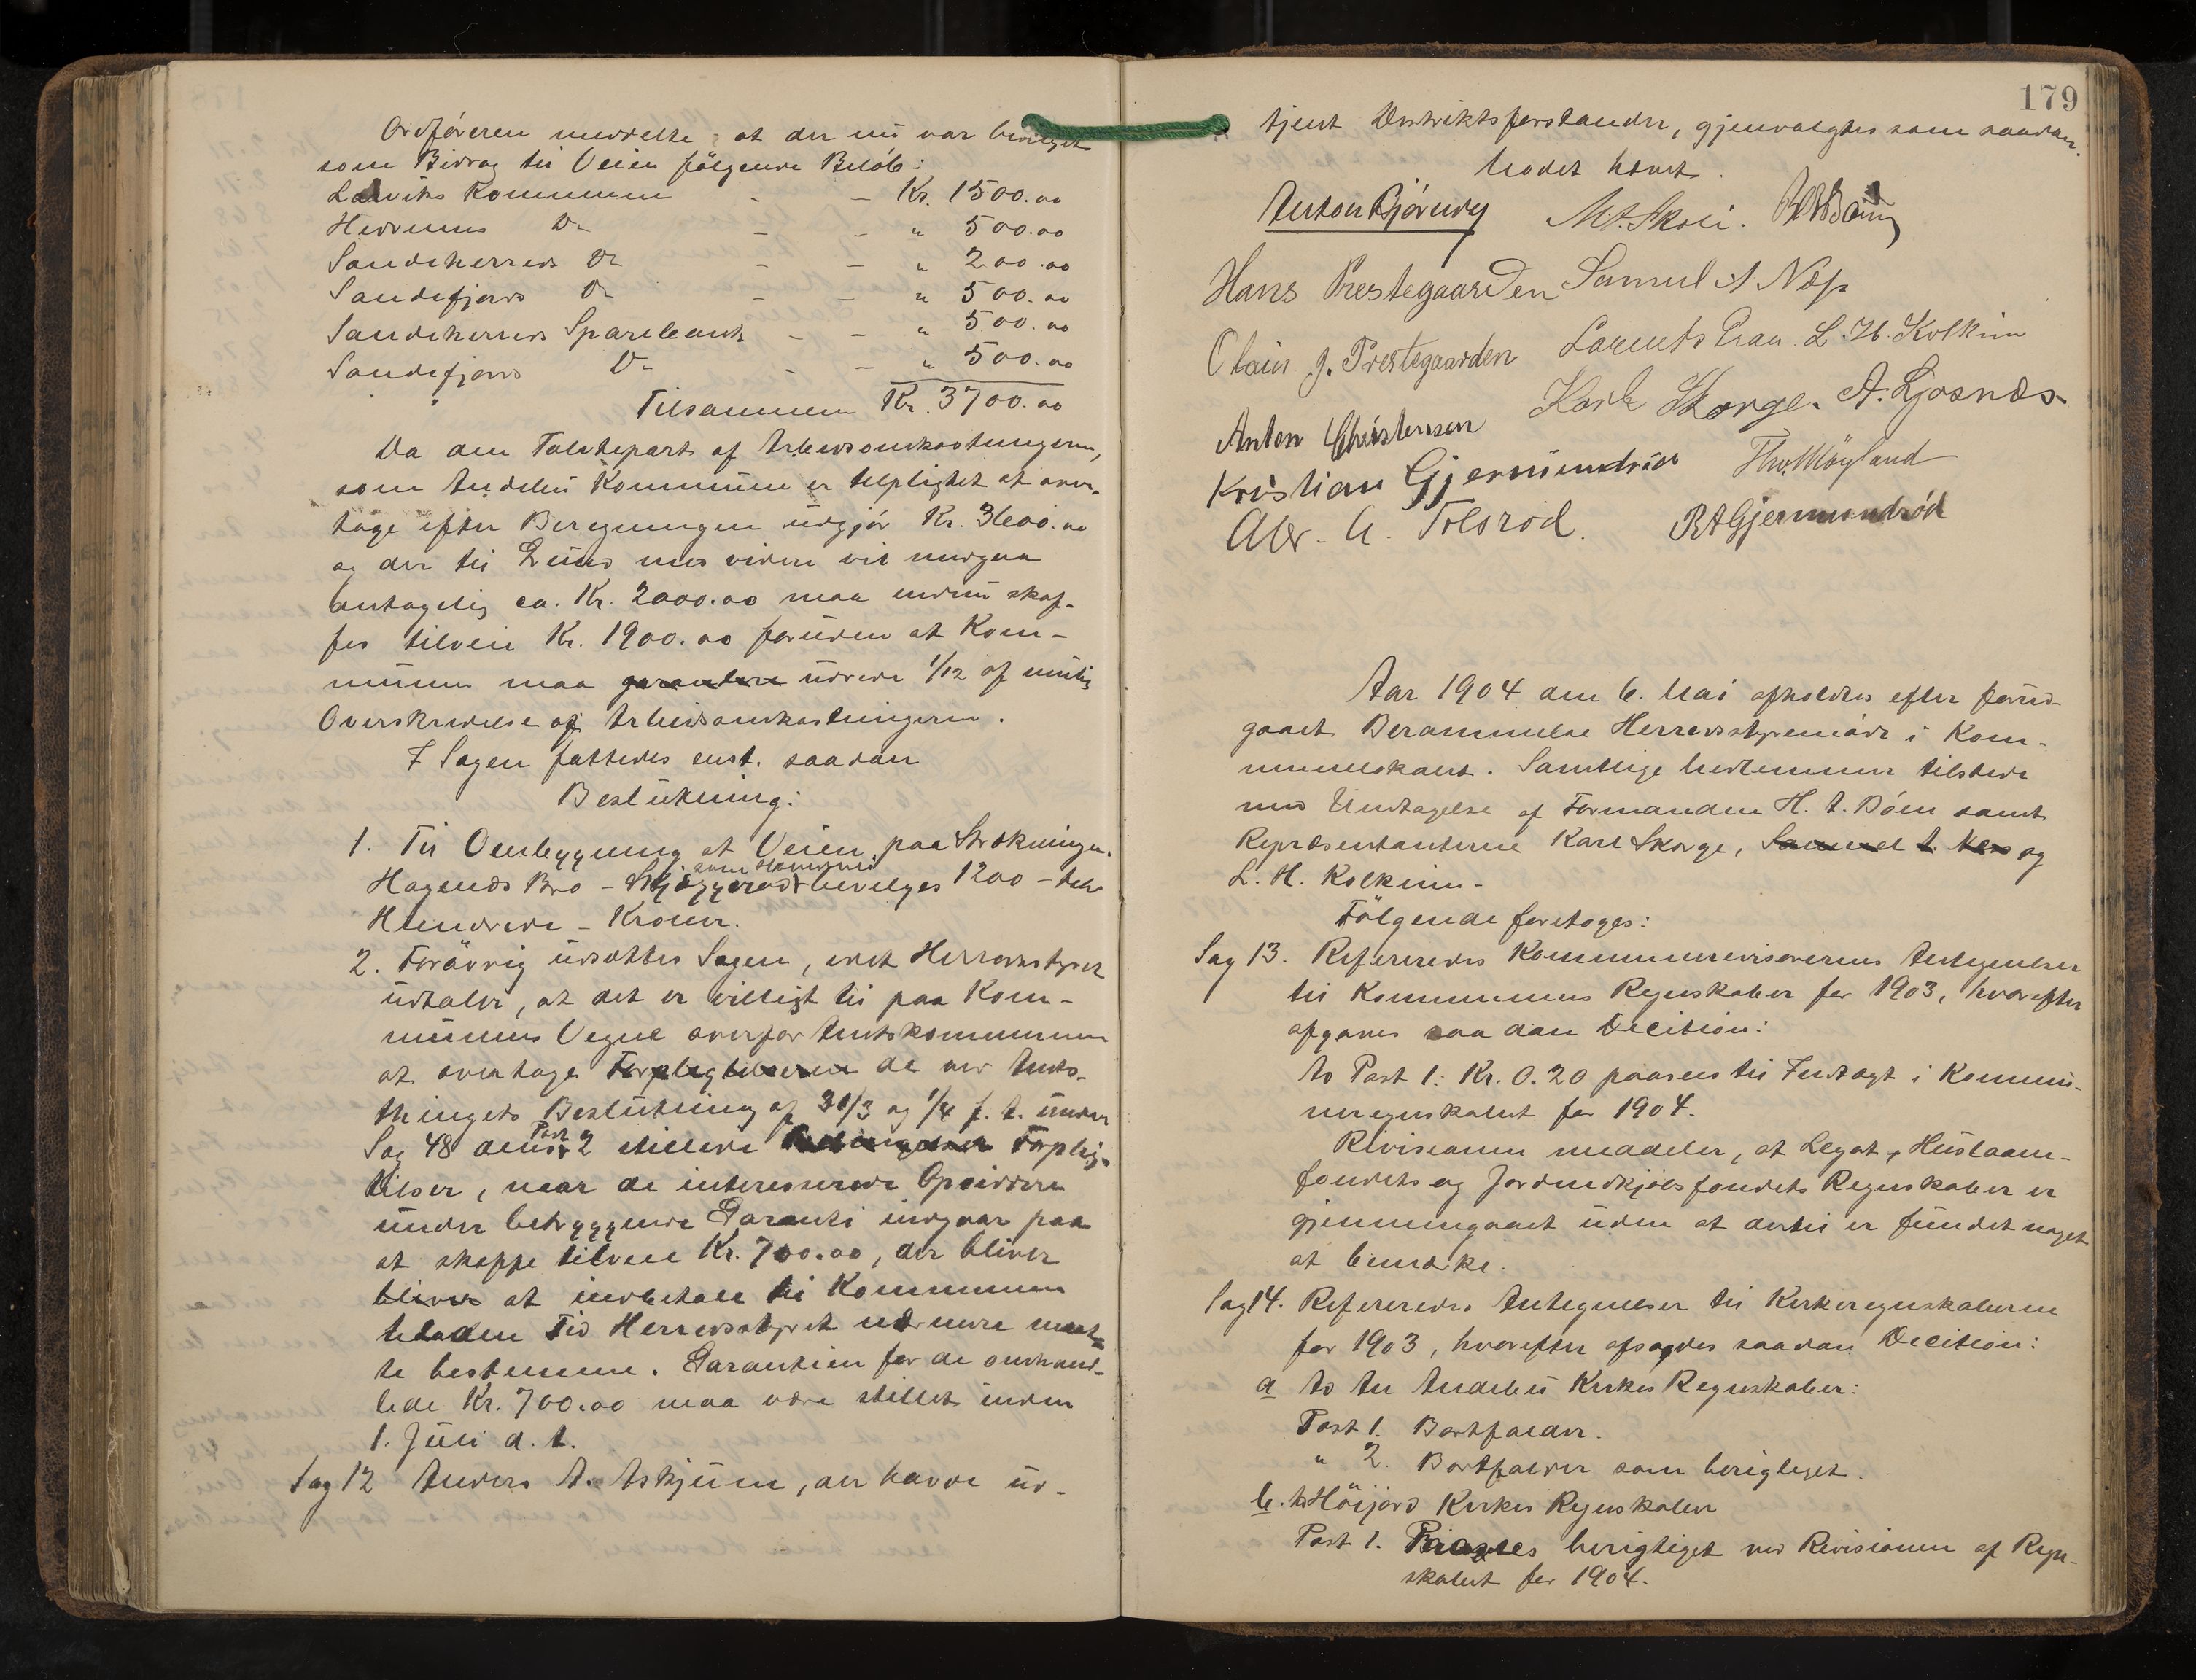 Ordføreren meddelte, at der nu var bevilget
som Bidrag til Veien følgende Beløb:
Larviks Kommune - - Kr. 1500.00
Hedrums Do - - " 500.00
Sandeherreds Do - - " 200.00
Sandefjords Do - - " 500.00
Sandeherreds Sparebank - - " 500.00
Sandefjords Do - - " 500.00
Tilsammen Kr. 3700.00
Da den Tolvtepart af Arbeidsomkostningerne,
som Andebu Kommune er tilpligtet at over-
tage efter Beregningen udgjør Kr. 3600.00
og der til Grund m.v. videre vil medgaa
antagelig ca. Kr. 2000.00 maa endnu skaf-
fes tilveie Kr. 1900.00 foruden at Kom-
munen maa garantere udrede 1/12 af mulig
Overskridelse af Arbeidsomkostningerne.
I Sagen fattedes enst. saadan
Beslutning:
1. Til Omlægning af Veien paa Strækningen
Hagenæs Bro - Skjæggerød som Hovedvei bevilges 1200 - tolv
Hundrede - Kroner.
2. Forøvrig udsættes Sagen, idet Herredsstyret
udtaler, at det er villigt til paa Kom-
munens Vegne overfor Amtskommunen
at overtage Forpligtelserne de ved Amts-
thingets Beslutning af 30/3 og 1/4 f. A. under
Sag 48 dens Post 2 stillede Betingelser Forplig-
telser, naar de interesserede Opsiddere
under betryggende Garanti indgaar paa
at skaffe tilveie Kr. 700.00, der bliver
bliver at indbetale til Kommunen
til den Tid Herredsstyret nærmere maat-
te bestemme. Garantien for de omhand-
lede Kr. 700.00 maa være stillet inden
1. Juli d. A.
Sag 12 Anders A. Askjum, der havde ud-
179
tjent Distriktsforstander, gjenvalgtes som saadan.
Mødet hævet.
Anton Bjørndy M. A. Skoli.
Hans Prestegaarden Samuel A Næss
Olaus J. Prestegaarden Laurents Praa. L. H. Kolkinn
Anton Christensen Karl Skorge. A. Ljosnæs
Kristian Gjermundrød Thv. Møyland
Alex. A. Tolsrød. R A Gjermundrød
Aar 1904 den 6. Mai afholdtes efter forud-
gaaet Berammelse Herredsstyremøde i Kom-
munelokalet. Samtlige Medlemmer tilstede
med Undtagelse af Formanden H. A. Bøen samt
Repræsentanterne Karl Skorge, Samuel A. Næss og
L. H. Kolkinn -
Følgende foretoges:
Sag 13. Refereredes Kommunerevisorernes Antegnelser
til Kommunens Regnskaber for 1903, hvorefter
afgaves saadan Decition:
Ad Post 1: Kr. 0.20 paasees til Indtægt i Kommu-
neregnskabet for 1904.
Revisionen meddeler, at Legat-, Huslaane-
fondets og Jordindkjøbsfondets Regnskaber er
gjennemgaaet uden at dertil er fundet noget
at bemærke.
Sag 14. Refereredes Antegnelser til Kirkeregnskaberne
for 1903, hvorefter afsagdes saadan Decition:
a Ad An Andebu Kirkes Regnskaber:
Post 1. Bortfalder.
" 2. Bortfalder som berigtiget.
b. Ad Høijord Kirkes Regnskaber
Post 1. Paasees berigtiget ved Revisionen af Regn-
skabet for 1904.